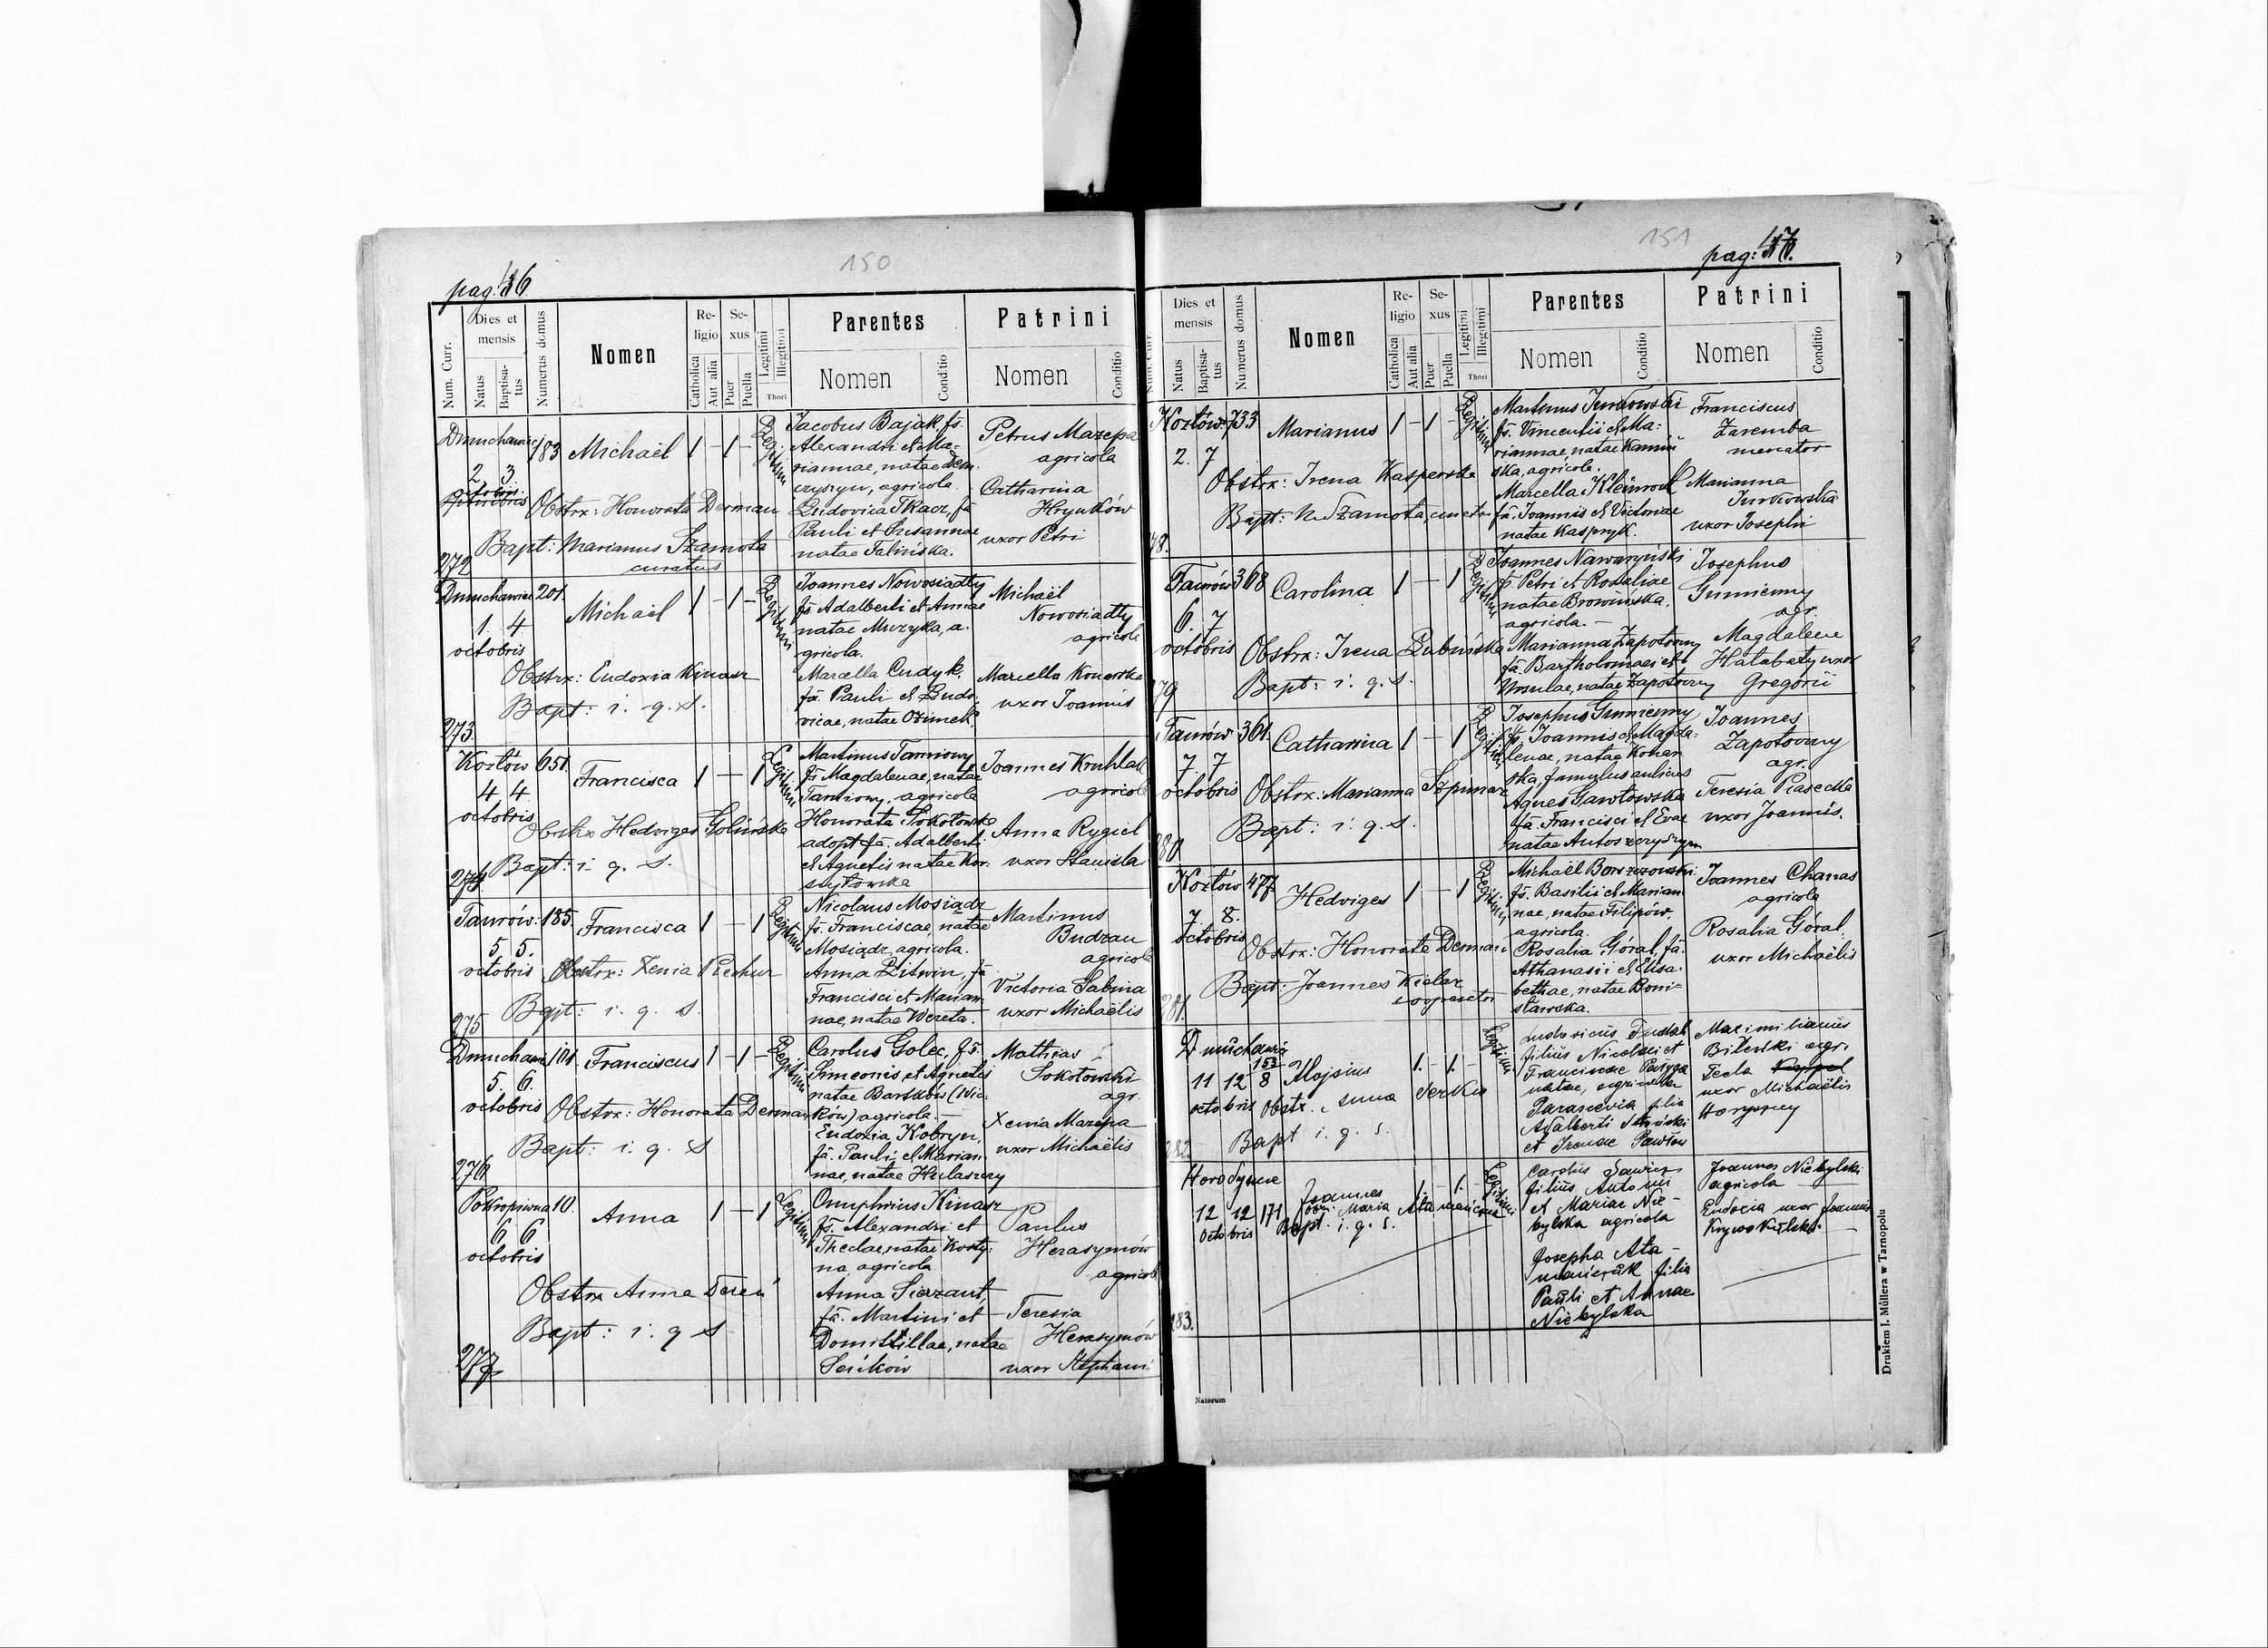 150
pag: 46
Num. Curr.
Dies et mensis
Natus
Baptisatus
Numerus domus
Nomen
Religio
Catholica
Aut alia
Sexus
Puer
Puella
Legitimi
Illegitimi
Thori
Parentes
Nomen
Conditio
Patrini
Nomen
Conditio
Dmuchawiec 183 Michaël 1 – 1 – Legitimi
2 3
octobris
Obstrx: Honorata Derman
Bapt: Marianus Szamota
curatus
272
Jacobus Bajak, fs.
Alexandri et Ma-
riannae, natae Dem-
czyszyn, agricola.
Ludovica Tkacz, fa
Pauli et Susannae
natae Falińska.
Petrus Mazepa
agricola
Catharina
Hryńków
uxor Petri
Dmuchawiec 201. Michaël 1 – 1 – Legitimi
1. 4
octobris
Obstrx: Eudoxia Kinasz
Bapt: i. q. s.
273.
Joannes Nowosiadły
fs Adalberti et Annae
natae Muzyka, a-
gricola.
Marcella Cudyk,
fa. Pauli et Ludo-
vicae, natae Ozimek.
Michaël
Nowosiadły
agricola
Marcella Konarska
uxor Joannis
Kozłów 651. Francisca 1 – 1 Legitimi
4 4
octobris
Obstrx Hedviges Golińska
Bapt: i. q. s.
274
Martinus Tarnowy
fs Magdalenae, natae
Tarnowy, agricola
Honorata Sokołowska
adopt. fa. Adalberti
et Agnetis natae Kor-
Joannes Kruhlak
agricola
Anna Rygiel
uxor Stanisla
Taurów. 185. Francisca 1 – 1 Legitimi
5 5.
octobris
Obstrx: Xenia Piechur
Bapt: i. q. s.
275
Nicolaus Mosiądz
fs. Franciscae, natae
Mosiądz, agricola.
Anna Litwin, fa
Francisci et Marian-
nae, natae Wereta.
Martinus
Budzan
agricola
Victoria Sabina
uxor Michaëlis
Dmuchawiec 101. Franciscus 1 – 1 – Legitimi
5. 6.
octobris
Obstrx: Honorata Derman
Bapt: i. q. s
276
Carolus Golec, fs.
Simeonis et Agnetis
natae Barsków (Wic-
ków) agricola. –
Eudoxia Kobryn,
fa. Pauli et Marian-
nae, natae Hulaszczy
Mathias
Sokołowski
agr.
Xenia Mazepa
uxor Michaëlis
Pokropiwna 10. Anna 1 – 1 Legitimi
6 6
octobris
Obstrx Anna Tereń
Bapt: i. q s
277
Onuphrius Kinasz
fs. Alexandri et
Theclae, natae Kosty-
na, agricola
Anna Sierżant,
fa. Martini et
Domitillae, natae
Seńków
Paulus
Herasymów
agricola
Teresia
Herasymów
uxor Stephani
151
pag: 47.
Num. Curr.
Dies et mensis
Natus
Baptisatus
Numerus domus
Nomen
Religio
Catholica
Aut alia
Sexus
Puer
Puella
Legitimi
Illegitimi
Thori
Parentes
Nomen
Conditio
Patrini
Nomen
Conditio
Kozłów 733 Marianus 1 – 1 – Legitimi
2. 7
Obstrx: Irena Kasperska
Bapt: M. Szamota, curatus
78.
Martinus Jurkowski
fs. Vincentii et Ma-
riannae, natae Kamiń-
ska, agricola.
Marcella Kleinrock
fa. Joannis et Victoriae
natae Kasprzyk.
Franciscus
Zaremba
mercator
Marianna
Jurkowska
uxor Josephi
Taurów 308 Carolina 1 – 1 Legitimi
6. 7
octobris
Obstrx: Irena Łubińska
Bapt: i. q. s.
79
Joannes Nawarzyński
fs Petri et Rosaliae
natae Browińska,
agricola. –
Marianna Zapotoczny
fa. Bartholomaei et
Ursulae, natae Zapotoczny
Josephus
Gumienny
agr.
Magdalene
Hałabaty uxor
Gregorii
Taurów 361. Catharina 1 – 1 Legitimi
7 7
octobris
Obstrx: Marianna Szpunar
Bapt: i. q. s.
80.
Josephus Gumienny
fs. Joannis et Magda-
lenae, natae Konar-
ska, famulus aulicus
Agnes Gawłowska
fa. Francisci et Evae
natae Antoszczyszyn
Joannes
Zapotoczny
agr.
Teresia Piasecka
uxor Joannis.
Kozłów 477 Hedviges 1 – 1 Legitimi
7. 8.
octobris
Obstrx: Honorata Derman
Bapt: Joannes Kielar
cooperator
281.
Michaël Borszowski
fs. Basilii et Marian-
nae, natae Filipów,
agricola.
Rosalia Góral, fa.
Athanasii et Elisa-
bethae, natae Boni-
sławska.
Joannes Charas
agricola
Rosalia Góral,
uxor Michaëlis
Dmuchawiec
11 12 8 Alojsius 1. – 1. – Legitimi
octobris Obstr. Anna Serkis
Bapt i. q. s.
282
Ludovicus Dudak
filius Nicolai et
Franciscae
natae, agricola
Parascevia filia
Adalberti
et Irenae Pawłow
Maximilianus
Bileński agr.
Tecla
uxor Michaëlis
Horyszny
Horodyszcze
12 12 171 Joannes 1. – 1. – Legitimi
octobris
Maria Atamańczuk
Bapt. i. q. s.
283.
Carolus Sawicz
filius Antonii
et Mariae Nie-
bylska agricola
Josepha Ata-
mańczuk filia
Pauli et Annae
Niebylska
Joannes Niebylski
agricola
Eudocia uxor Joannis
Krywokulska
Natorum
Drukiem J. Müllera w Tarnopolu